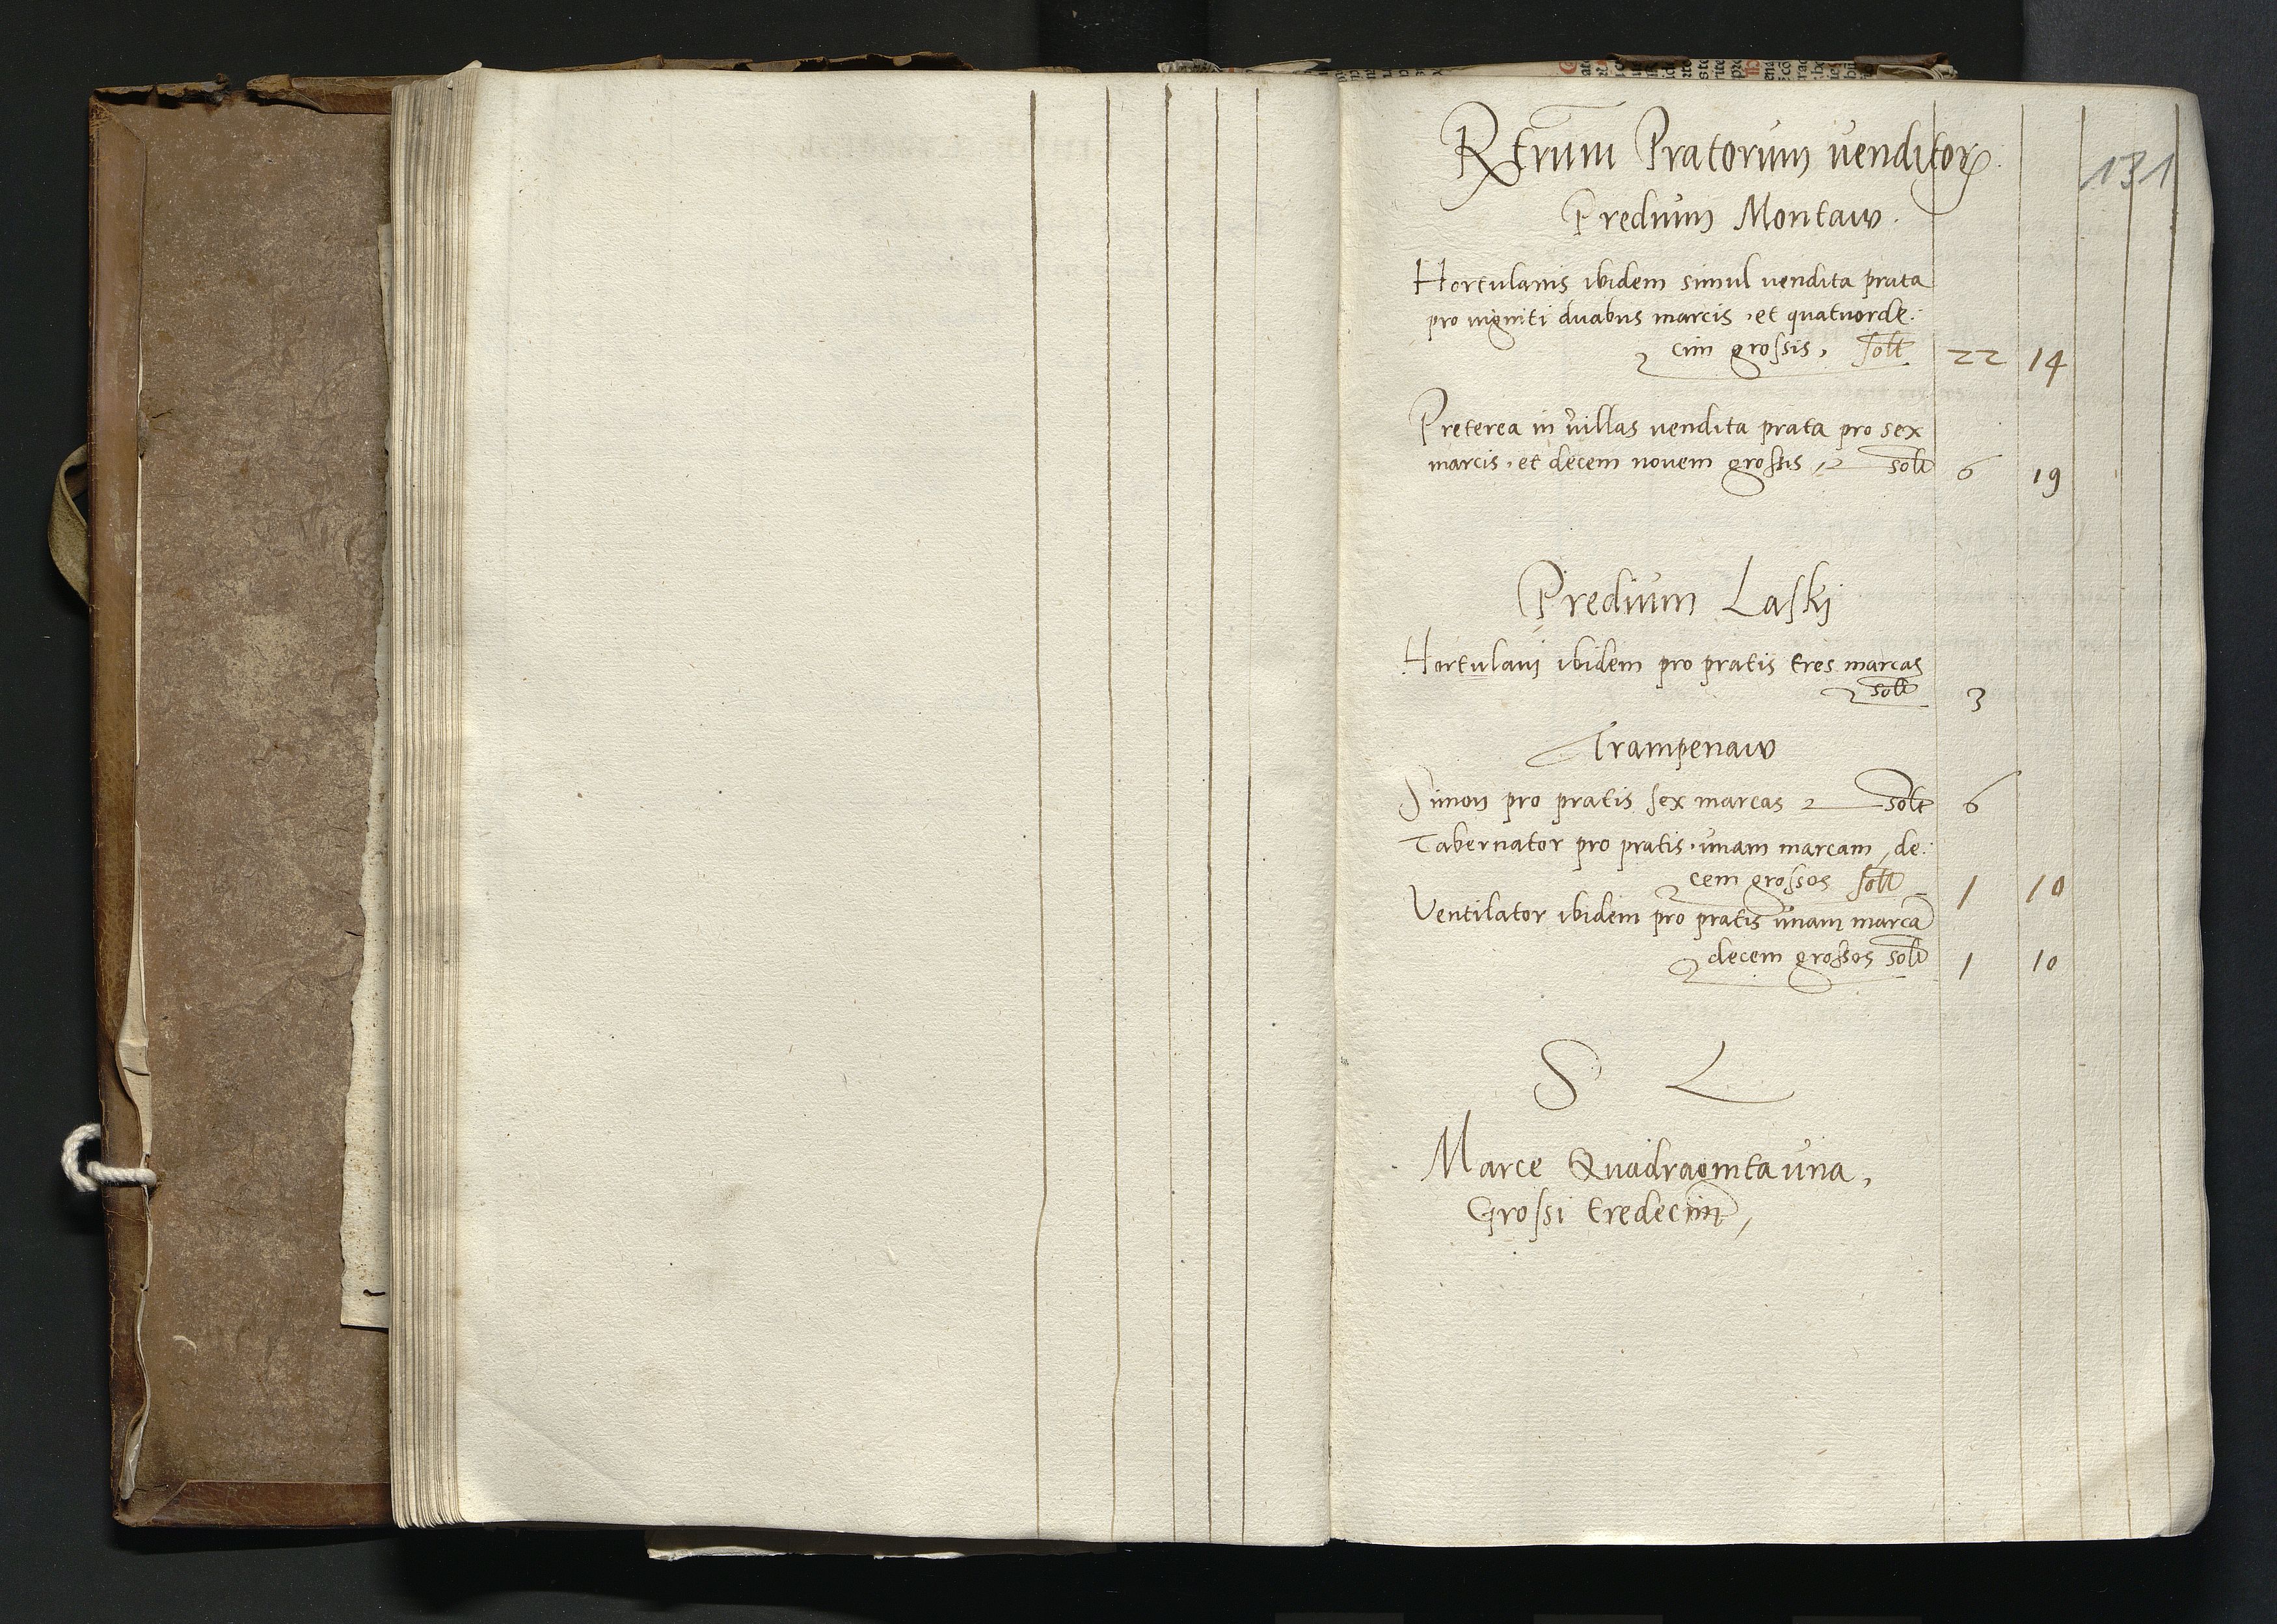 Rerum Pratorum venditorꝝ
131
Predium Montaw.
Hortulanis ibidem simul vendita prata
pro viginti duabus marcis, et quatuorde:
cim grossis, solt 22 14
Preterea in villas vendita prata pro sex
marcis, et decem novem grossis, solt 6 19
Predium Laskj
Hortulani ibidem pro pratis tres marcas
solt 3
Trampenaw
Simon pro pratis sex marcas solt 6
Tabernator pro pratis, unam marcam, de:
cem grossos solt 1 10
Ventilator ibidem pro pratis unam marcā
decem grossos solt 1 10
S L
Marce Quadraginta una,
Grossi tredecim,